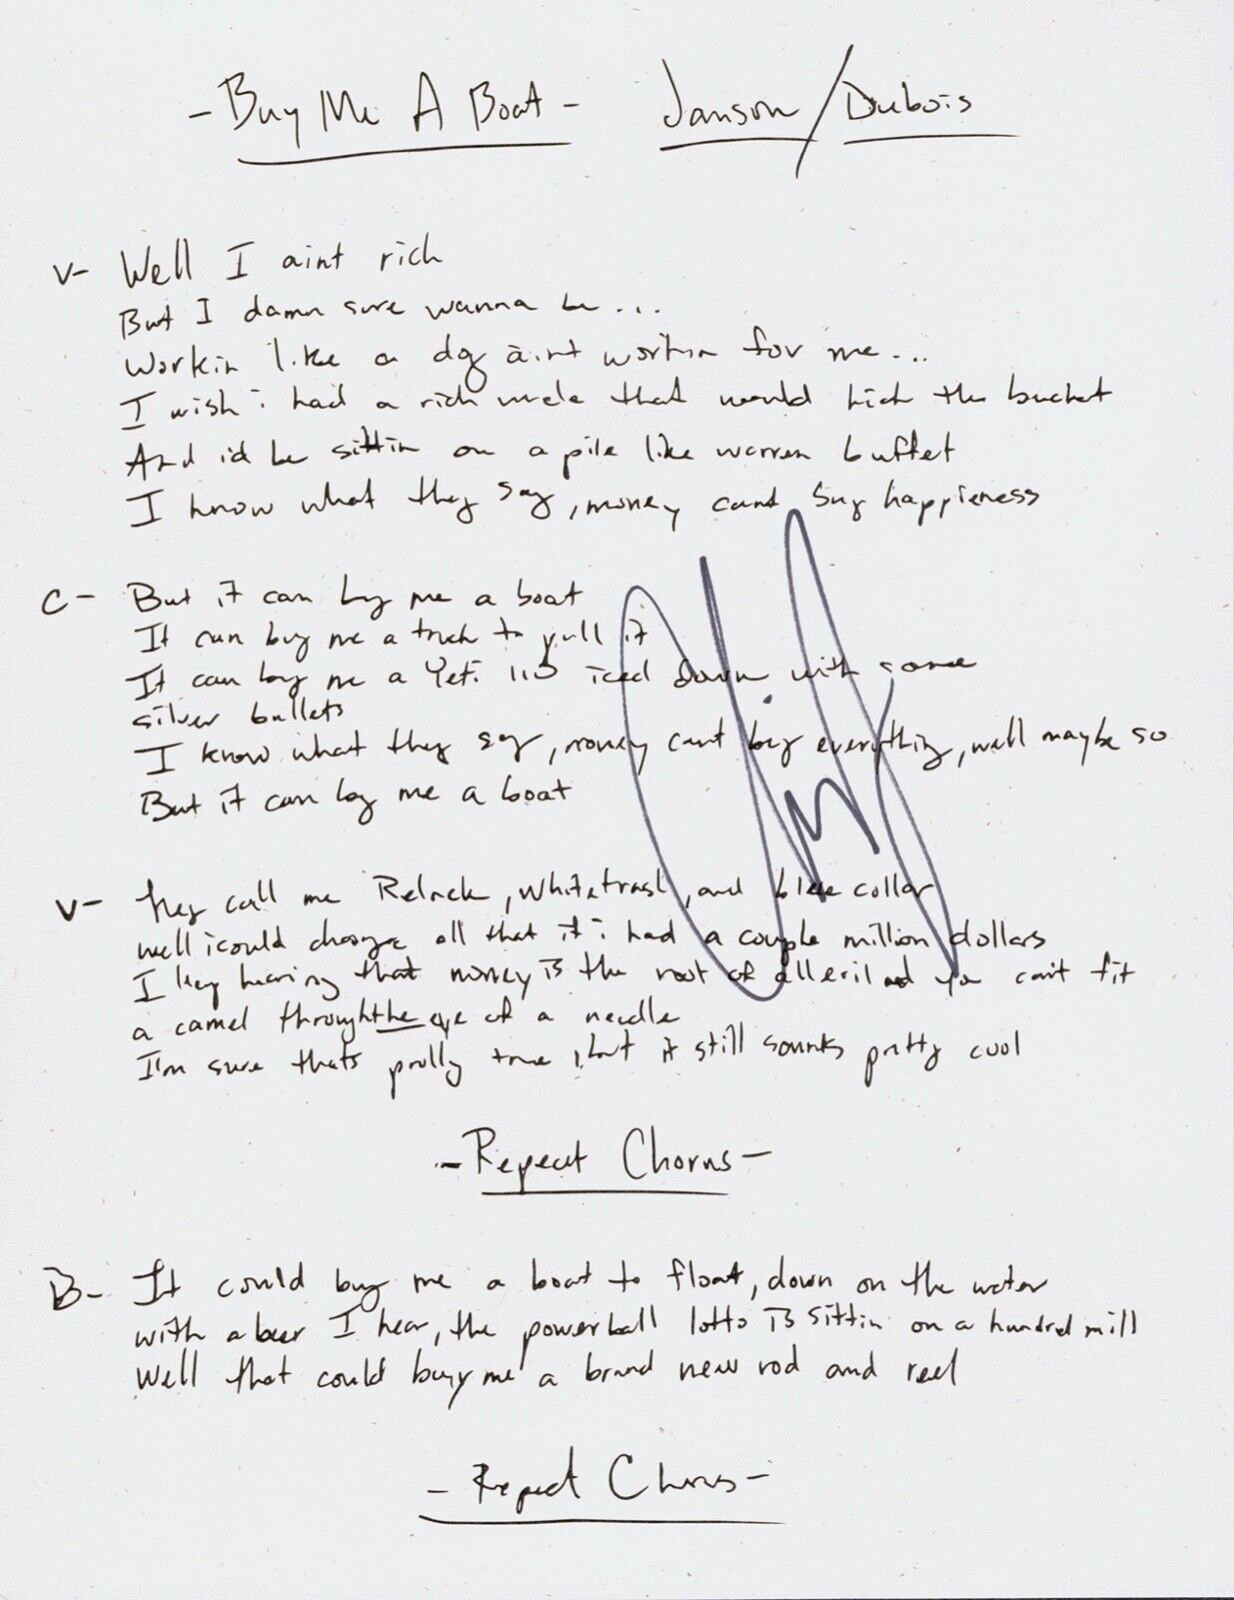 - Buy Me A Boat - Janson/Dubois
V- Well I aint rich
But I damn sure wanna be...
Workin like a dog aint workin for me...
I wish i had a rich uncle that would kick the bucket
And i'd be sittin on a pile like warren buffet
I know what they say, money cant buy happieness
C- But it can buy me a boat
It can buy me a truck to pull it
It can buy me a Yeti 110 iced down with some
silver bullets
I know what they say, money cant buy everything, well maybe so
But it can buy me a boat
V- They call me Redneck, whitetrash, and blue collar
well i could change all that if i had a couple million dollars
I key hearing that money is the root of all evil and you can't fit
a camel through the eye of a needle
I'm sure thats prolly true, but it still sounds pretty cool
- Repeat Chorus -
B- It could buy me a boat to float, down on the water
with a beer I hear, the powerball lotto is sittin on a hundred mill
Well that could buy me a brand new rod and reel
- Repeat Chorus -